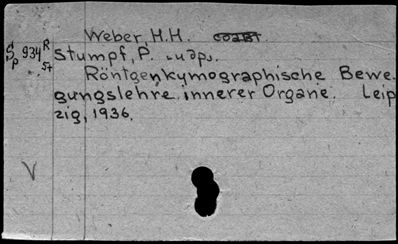 Weber, H.H. соавт.
Sp 934 R/54
Stumpf, P. и др.
Röntgenkymographische Bewe-
gungslehre innerer Organe. Leip
zig, 1936.
V